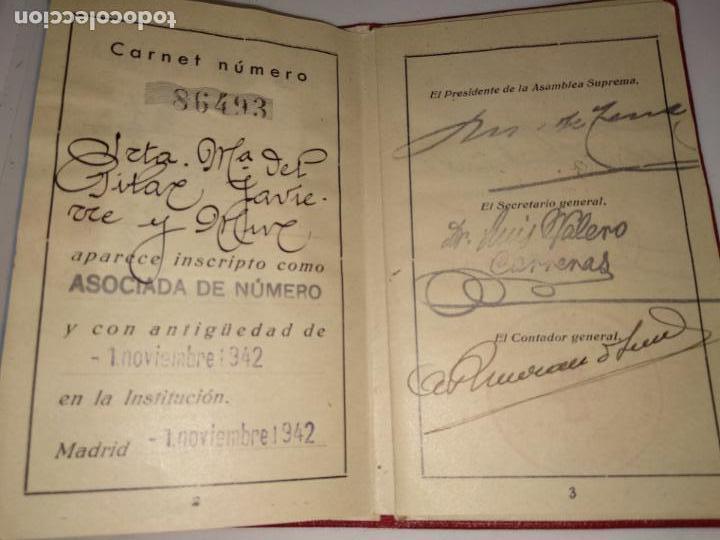 todocoleccion
Carnet número
86493
Srta. Mª del
Pilar Javie-
rre y Mur
aparece inscripto como
ASOCIADA DE NÚMERO
y con antigüedad de
- 1 noviembre 1942
en la Institución.
Madrid - 1 noviembre 1942
2
El Presidente de la Asamblea Suprema,
El Secretario general,
Dr. Luis Valero
Carreras
El Contador general,
3
todocoleccion.net